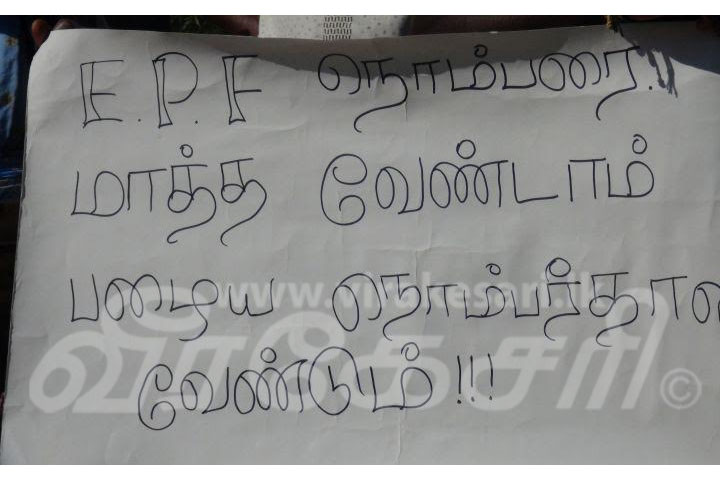 E.P.F நொம்பரை..!
மாத்த வேண்டாம்
பழைய நொம்பர்தான
வேண்டும் !!!
www.virakesari.lk
வீரகேசரி ©